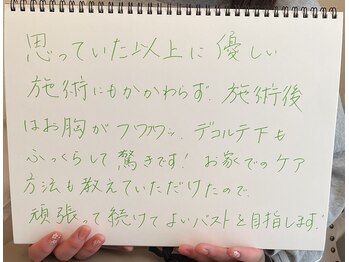 思っていた以上に優しい
施術にもかかわらず、施術後
はお胸がフワフワッ、デコルテ下も
ふっくらして驚きです! お家でのケア
方法も教えていただけたので、
頑張って続けてよいバストを目指します!